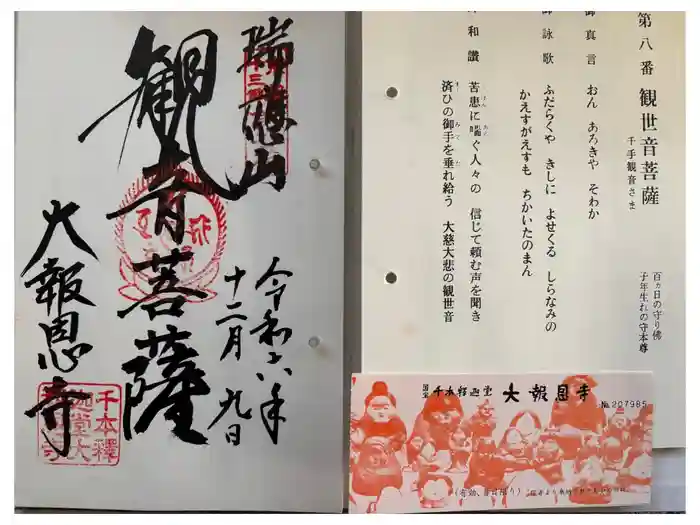 第八番 観世音菩薩
千手観音さま
百ヵ日の守り佛
子年生れの守本尊
御真言 おん あろきや そわか
御詠歌 ふだらくや きしに よせくる しらなみの
かえすがえすも ちかいたのまん
和讃 苦患に喘ぐ人々の 信じて頼む声を聞き
済ひの御手を垂れ給う 大慈大悲の観世音
瑞應山
観音菩薩
大報恩寺
令和六年
十二月九日
千本釋
迦堂大
国宝 千本釈迦堂 大報恩寺
№207985